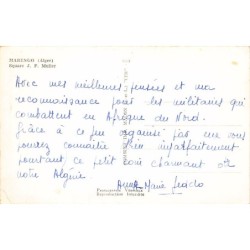 MARENGO (Alger)
Square J. F. Muller
Avec mes meilleures pensées et ma
reconnaissance pour les militaires qui
combattent en Afrique du Nord.
Grâce à ce jeu organisé par eux vous
pourrez connaître bien imparfaitement
pourtant, ce petit coin charmant de
notre Algérie
Anne Marie